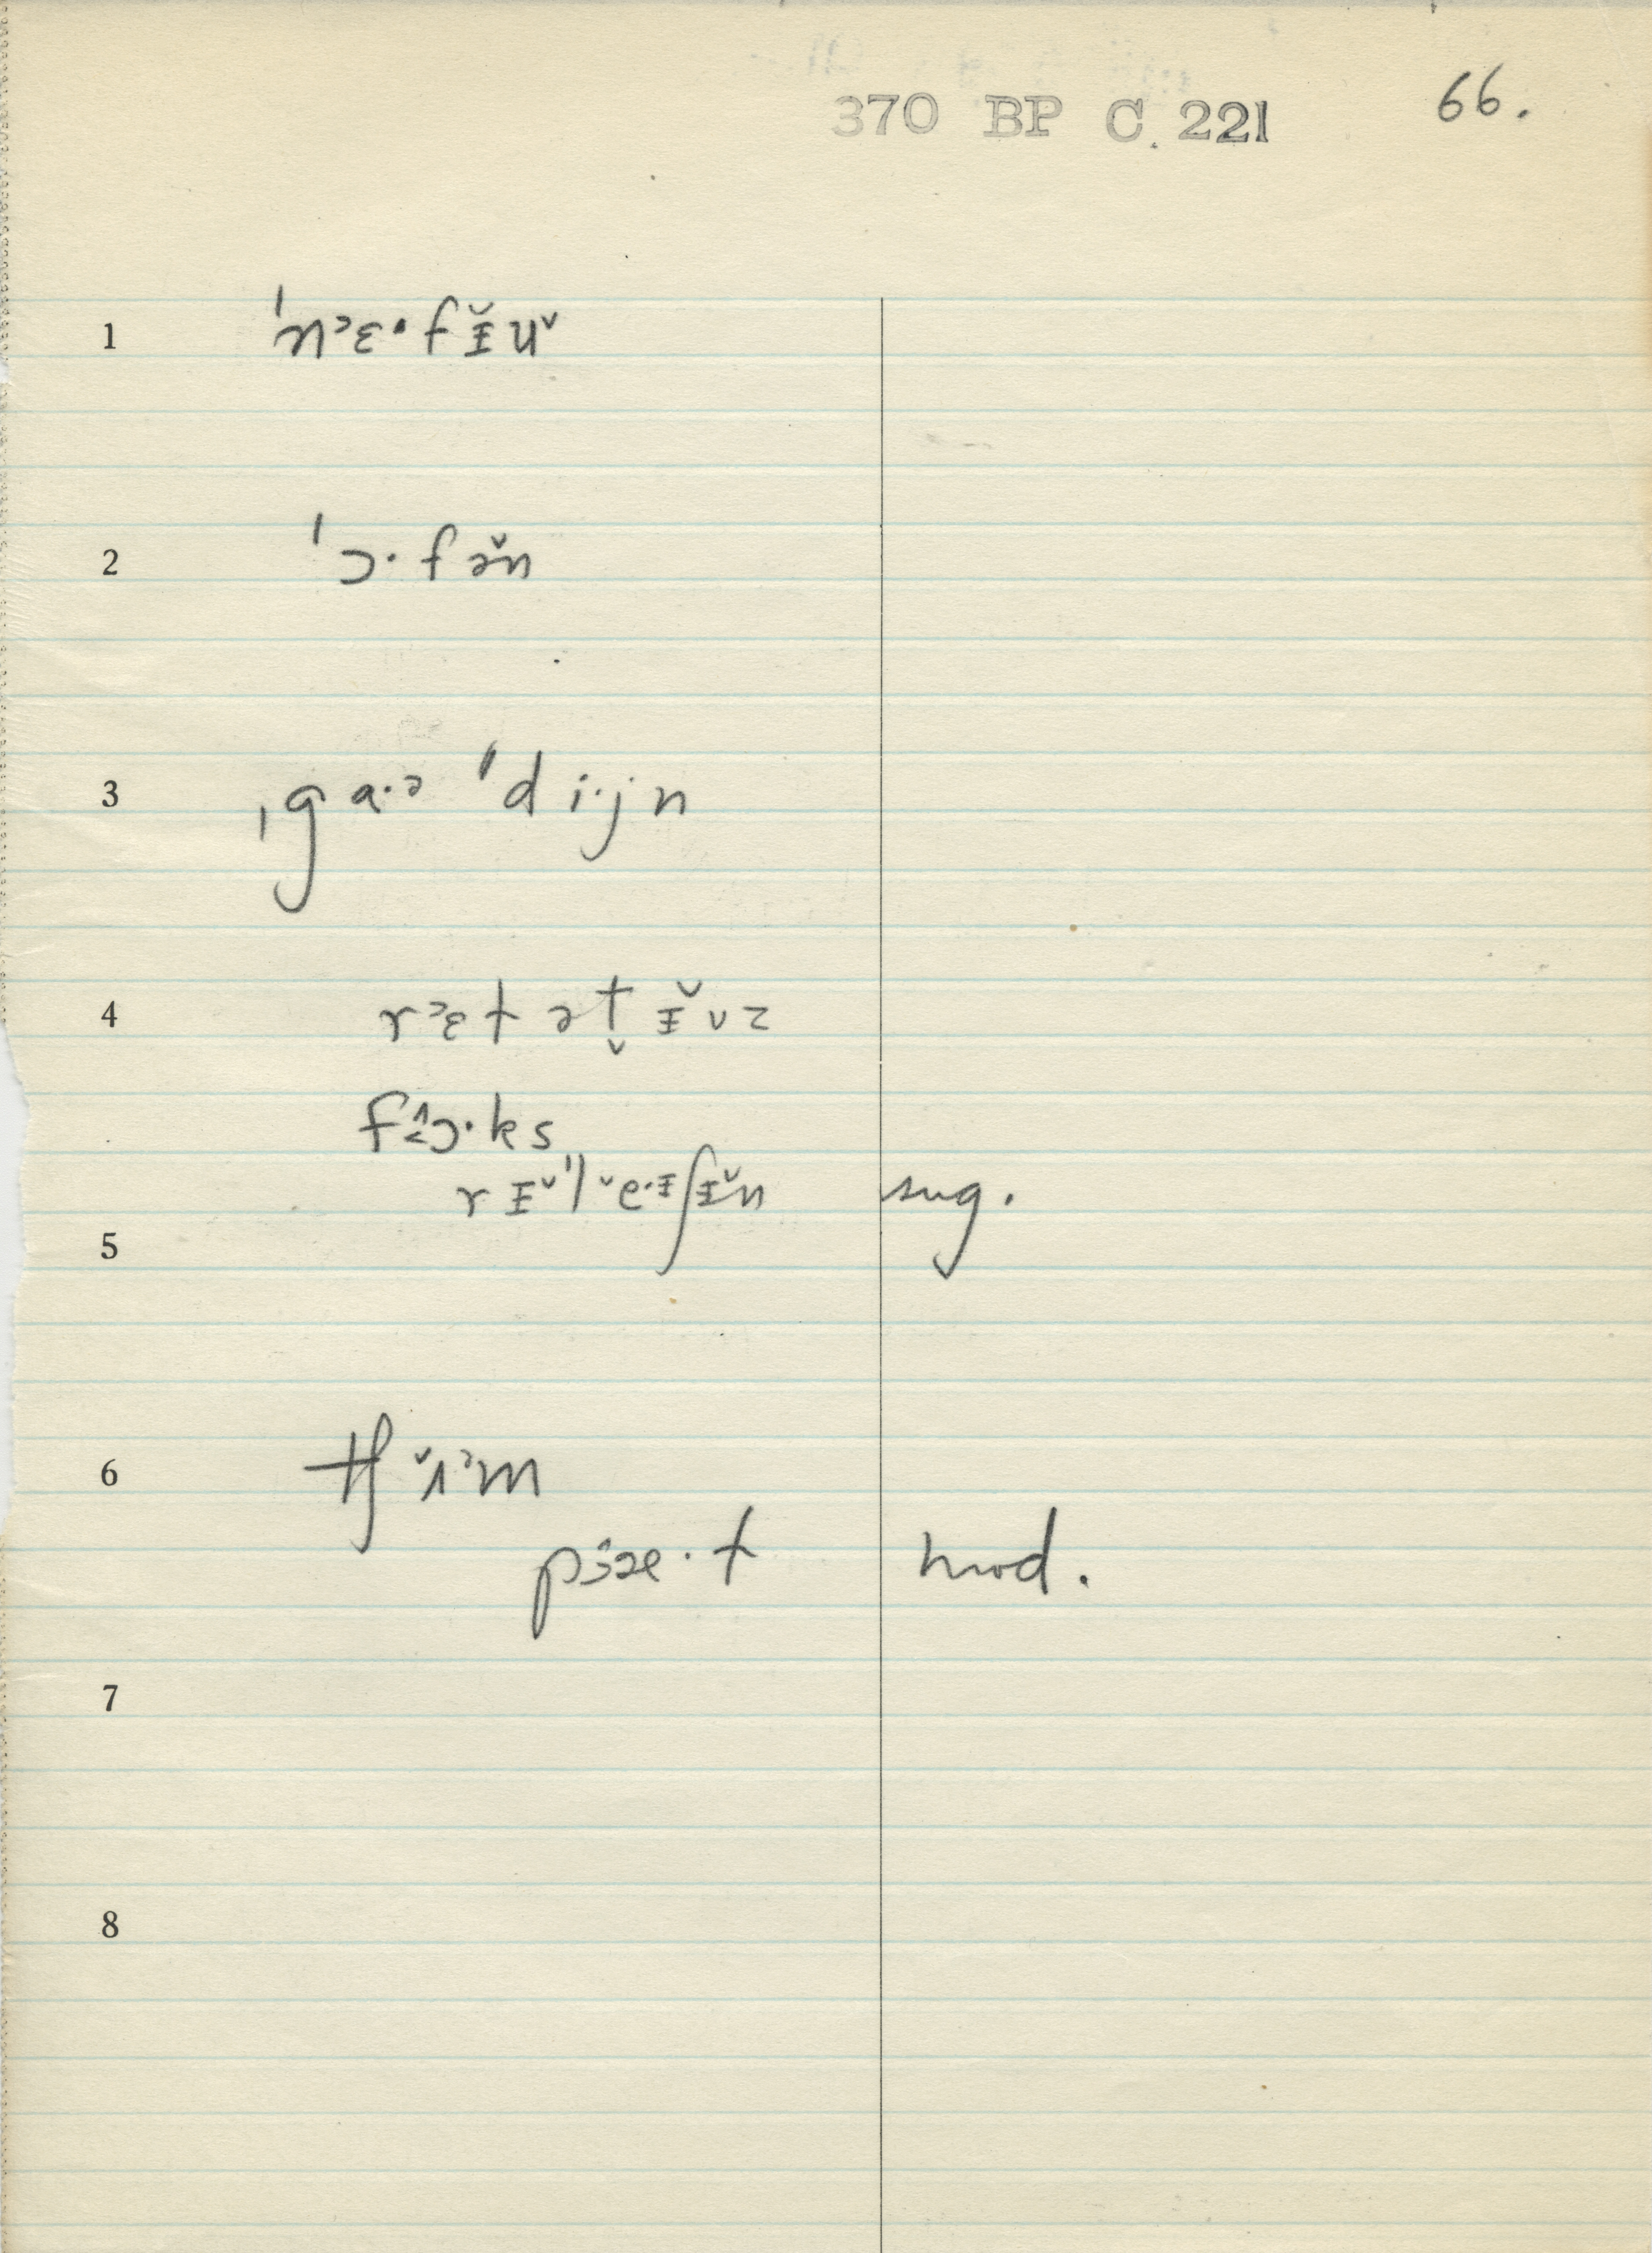 370 BP C. 221 66.
1 ˈnᵓɛ·fɪ̵̆u̬
2 ˈɔ·fə̆n
3 ˌgɑ·ə ˈdi·jn
4 rᵓɛt ət̬ɪ̵̆vz
fɔ·ks
rɪ̵ˈle·ɪ̵ʃɪ̵̆n sug.
5
6 tʃʌᵊm
pæ·t mod.
7
8